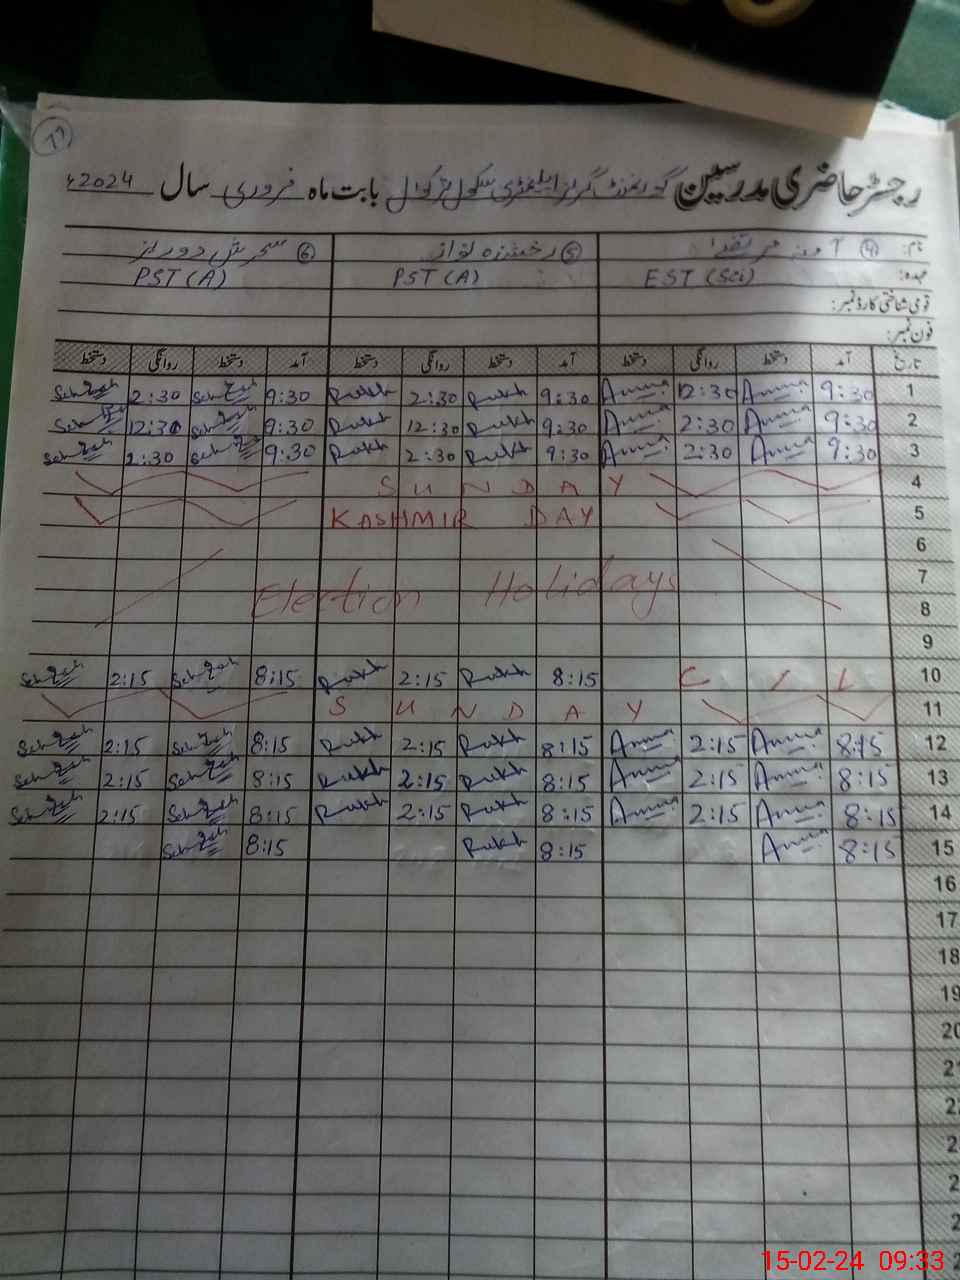 رجسٹر حاضری مدرسین گورنمنٹ گرلز ایلیمنٹری سکول بابت ماہ فروری سال 2024ء
نام: ④ آمنہ ⑤ رخشندہ نواز ⑥ سحرش
عہدہ: EST (Sci) PST (A) PST (A)
قومی شناختی کارڈ نمبر:
فون نمبر:
تاریخ آمد دستخط روانگی دستخط آمد دستخط روانگی دستخط آمد دستخط روانگی دستخط
1 9:30 Amna 12:30 Amna 9:30 Rukh 2:30 Rukh 9:30 2:30
2 9:30 Amna 2:30 Amna 9:30 Rukh 12:30 Rukh 9:30 12:30
3 9:30 Amna 2:30 Amna 9:30 Rukh 2:30 Rukh 9:30 2:30
4 SUNDAY
5 KASHMIR DAY
6
7 Election Holidays
8
9
10 C / L 8:15 Rukh 2:15 Rukh 8:15 2:15
11 SUNDAY
12 8:15 Amna 2:15 Amna 8:15 Rukh 2:15 Rukh 8:15 2:15
13 8:15 Amna 2:15 Amna 8:15 Rukh 2:15 Rukh 8:15 2:15
14 8:15 Amna 2:15 Amna 8:15 Rukh 2:15 Rukh 8:15 2:15
15 8:15 Amna 8:15 Rukh 8:15
16
17
18
19
20
15-02-24 09:33